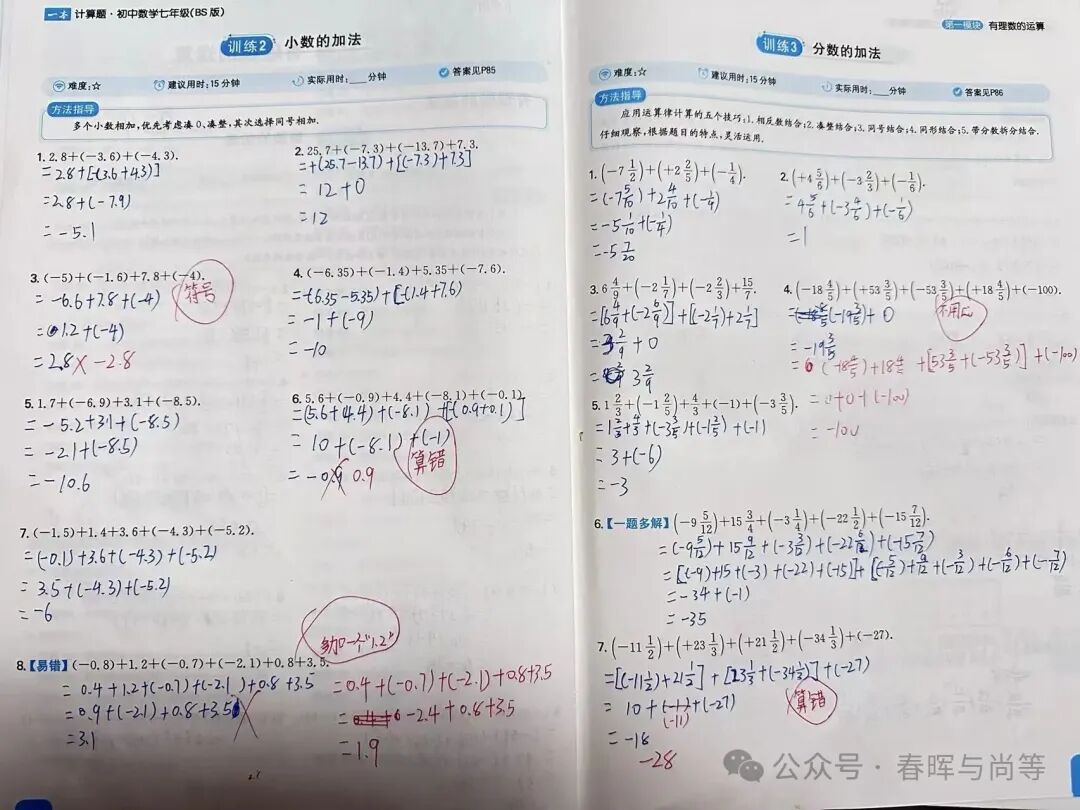 一本 计算题·初中数学七年级(BS版)
训练2 小数的加法
难度:☆ 建议用时:15分钟 实际用时:____分钟 答案见P85
方法指导
多个小数相加,优先考虑凑0、凑整,其次选择同号相加.
1. 2.8+(−3.6)+(−4.3).
=2.8+[-(3.6+4.3)]
=2.8+(-7.9)
=-5.1
2. 25.7+(−7.3)+(−13.7)+7.3.
=+(25.7-13.7)+[(-7.3)+7.3]
=12+0
=12
3. (−5)+(−1.6)+7.8+(−4).
=-6.6+7.8+(-4)
=1.2+(-4)
=2.8 × -2.8
符号
4. (−6.35)+(−1.4)+5.35+(−7.6).
=-(6.35-5.35)+[-(1.4+7.6)
=-1+(-9)
=-10
5. 1.7+(−6.9)+3.1+(−8.5).
=-5.2+3.1+(-8.5)
=-2.1+(-8.5)
=-10.6
6. 5.6+(−0.9)+4.4+(−8.1)+(−0.1).
=(5.6+4.4)+(-8.1)+[-(0.9+0.1)]
=10+(-8.1)+(-1)
=-0.9 0.9
算错
7. (−1.5)+1.4+3.6+(−4.3)+(−5.2).
=(-0.1)+3.6+(-4.3)+(-5.2)
=3.5+(-4.3)+(-5.2)
=-6
多加一个"1.2"
8.【易错】(−0.8)+1.2+(−0.7)+(−2.1)+0.8+3.5.
=0.4+1.2+(-0.7)+(-2.1)+0.8+3.5
=0.9+(-2.1)+0.8+3.5
=3.1
=0.4+(-0.7)+(-2.1)+0.8+3.5
=-2.4+0.8+3.5
=1.9
第一模块 有理数的运算
训练3 分数的加法
难度:☆ 建议用时:15分钟 实际用时:____分钟 答案见P86
方法指导
应用运算律计算的五个技巧:1.相反数结合;2.凑整结合;3.同号结合;4.同形结合;5.带分数拆分结合.
仔细观察,根据题目的特点,灵活运用.
1. (−7 1/2)+(+2 2/5)+(−1/4).
=(-7 5/10)+2 4/10+(-1/4)
=-5 1/10+(-1/4)
=-5 7/20
2. (+4 5/6)+(−3 2/3)+(−1/6).
=4 5/6+(-3 4/6)+(-1/6)
=1
3. 6 4/9+(−2 1/7)+(−2 2/3)+15/7.
=[6 4/9+(-2 6/9)]+[(-2 1/7)+2 1/7]
=3 2/9+0
=3 2/9
4. (−18 4/5)+(+53 3/5)+(−53 3/5)+(+18 4/5)+(−100).
(-19 3/5)+0
=-19 3/5
=(-18 4/5)+18 4/5+[53 3/5+(-53 3/5)]+(-100)
=0+0+(-100)
=-100
5. 1 2/3+(−1 2/5)+4/3+(−1)+(−3 3/5).
=1 2/3+4/3+(-3 3/5)+(-1 2/5)+(-1)
=3+(-6)
=-3
6.【一题多解】(−9 5/12)+15 3/4+(−3 1/4)+(−22 1/2)+(−15 7/12).
=(-9 5/12)+15 9/12+(-3 3/12)+(-22 6/12)+(-15 7/12)
=[(-9)+15+(-3)+(-22)+(-15)]+[(-5/12)+9/12+(-3/12)+(-6/12)+(-7/12)
=-34+(-1)
=-35
7. (−11 1/2)+(+23 1/3)+(+21 1/2)+(−34 1/3)+(−27).
=[(-11 1/2)+21 1/2]+[23 1/3+(-34 1/3)]+(-27)
=10+(-12)+(-27)
(-11)
=-18
-28
算错
公众号·春晖与尚等